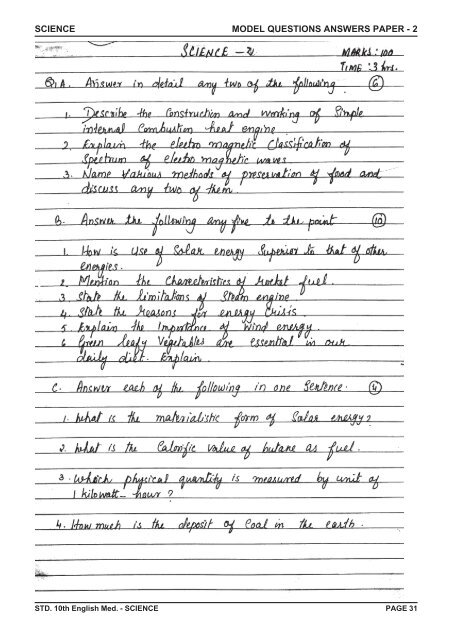 SCIENCE MODEL QUESTIONS ANSWERS PAPER - 2
SCIENCE - 2 MARKS : 100
TIME : 3 hrs.
Q1 A. Answer in detail any two of the following (6)
1. Describe the Construction and working of Simple
internal Combustion heat engine.
2. Explain the electro magnetic Classification of
Spectrum of electro magnetic waves
3. Name Various methods of preservation of food and
discuss any two of them.
B. Answer the following any five to the point (10)
1. How is Use of Solar energy Superior to that of other
energies.
2. Mention the Charecteristics of rocket fuel.
3. State the limitations of Steam engine
4. State the reasons for energy Crisis
5. Explain the Importance of Wind energy.
6 Green leafy Vegetables are essential in our
daily diet. Explain.
C. Answer each of the following in one Sentence. (4)
1. What is the materialistic form of Solar energy?
2. What is the Calorific value of butane as fuel.
3. Which physical quantity is measured by unit of
1 kilowatt - hour ?
4. How much is the deposit of Coal in the earth.
STD. 10th English Med. - SCIENCE PAGE 31